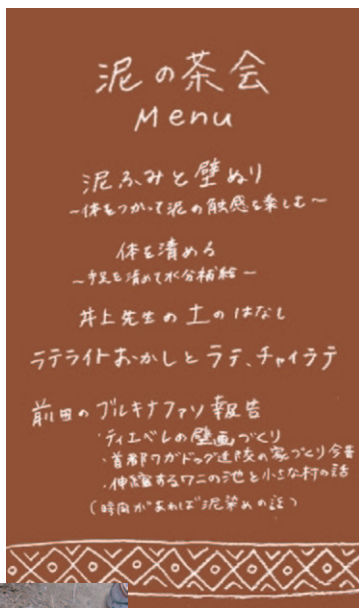 泥の茶会
Menu
泥ふみと壁ぬり
〜体をつかって泥の触感を楽しむ〜
体を清める
〜手足を清めて水分補給〜
井上先生の土のはなし
ラテライトおかしとラテ、チャイラテ
前田のブルキナファソ報告
・ティエベレの壁画づくり
・首都ワガドゥグ近隣の家づくり今昔
・伸縮するワニの池と小さな村の話
(時間があれば泥染めの話)